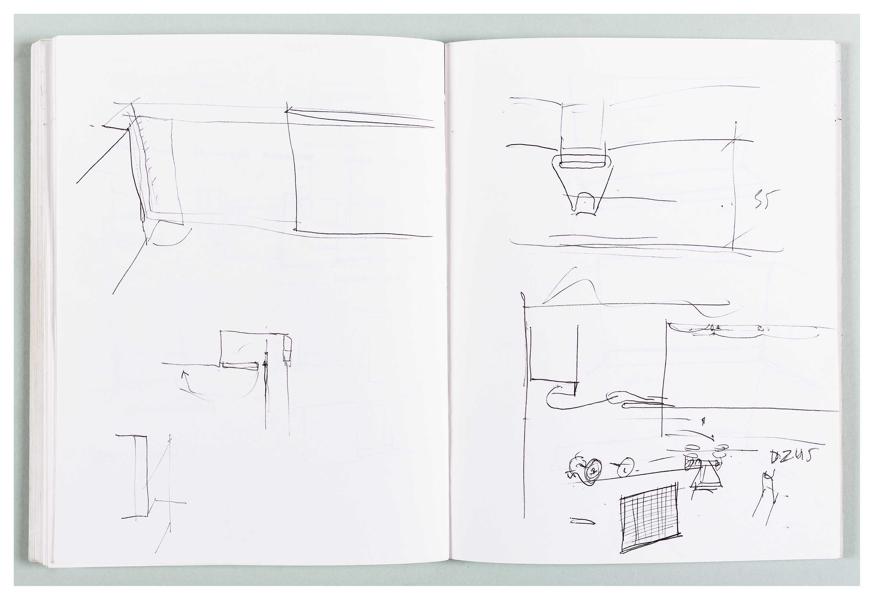 35
DZUS